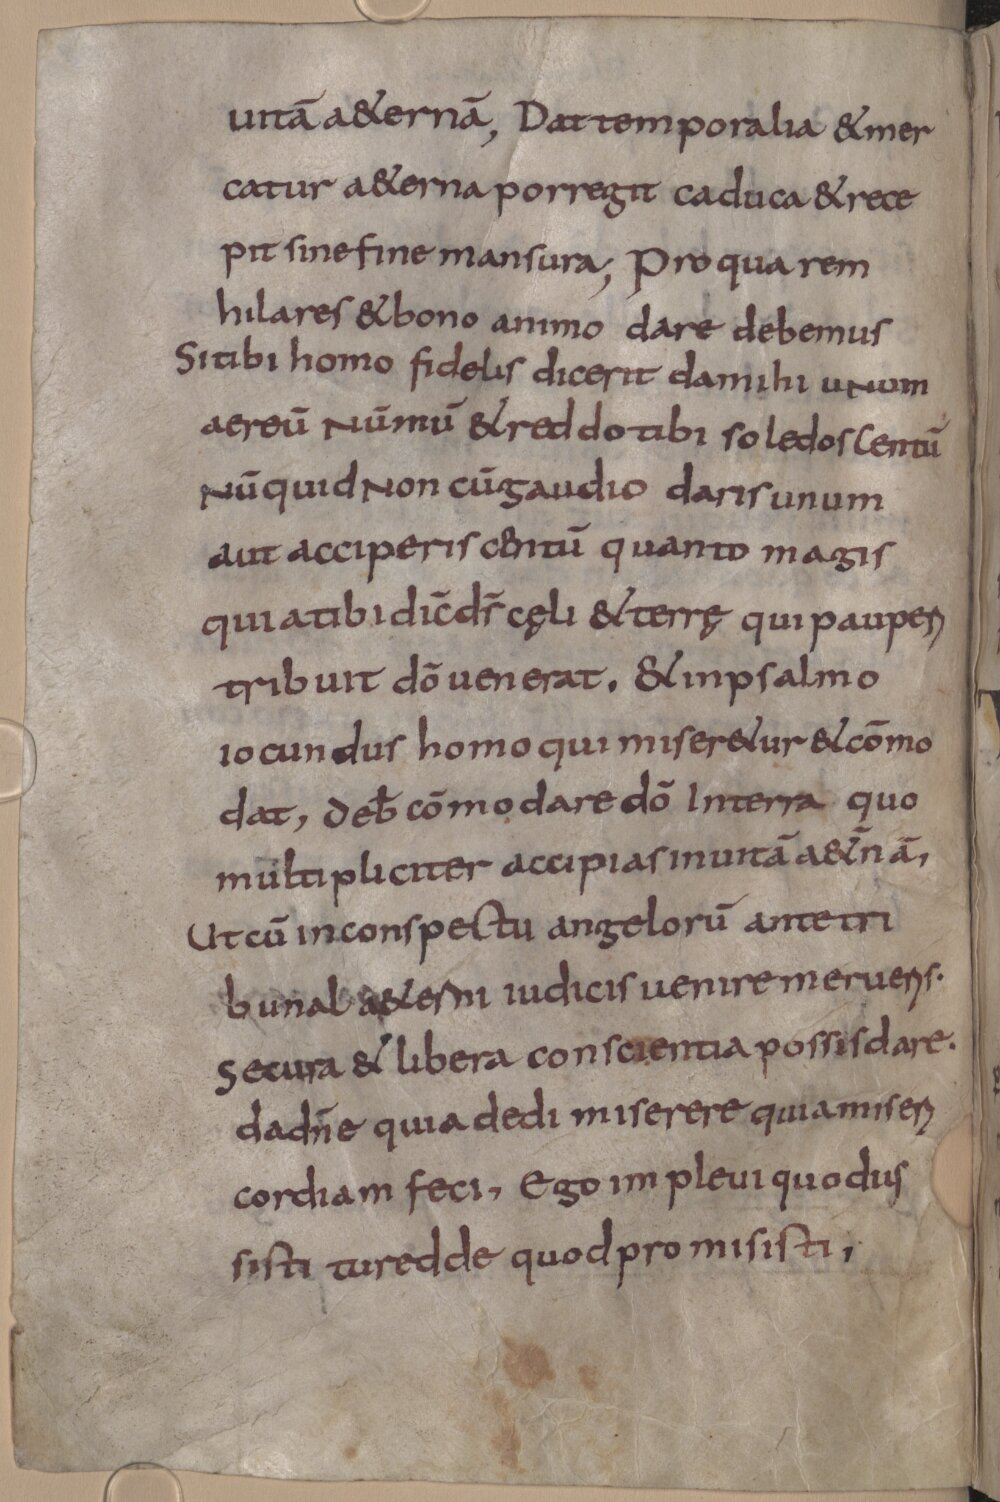 uitā a&ernā, Dat temporalia & mer
catur a&erna porregit caduca & rece
pit sine fine mansura, Pro qua rem
hilares & bono animo dare debemus
Si tibi homo fidelis dicerit da mihi unum
aereū nūmū & reddo tibi soledos centū
nūquid non cū gaudio daris unum
aut acciperis centū quanto magis
quia tibi dic̄ dr̄ cęli & terrę qui pauper
tribuit dō uenerat. & in psalmo
iocundus homo qui miser&ur & cōmo
dat, deb̄ cōmodare dō In terra quo
multipliciter accipias in uitā a&̄nā,
Ut cū in conspectu angelorū ante tri
bunal a&erni iudicis uenire meruers.
Secura & libera conscientia possis dare.
da dn̄e quia dedi miserere quia miser
cordiam feci, Ego impleui quod us
sisti tu redde quod promisisti,